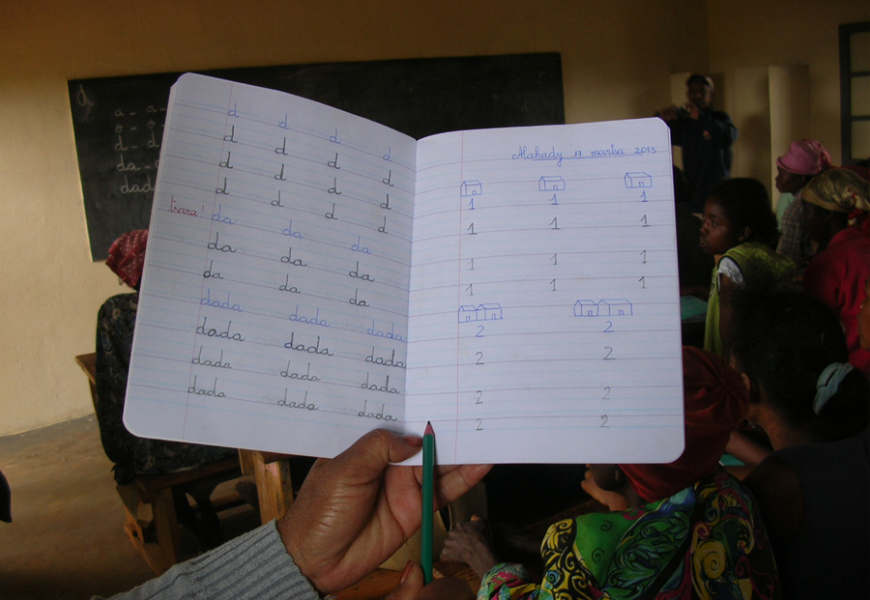 a - a -
o - o
d - d
da -
dad
d d d d
d d d d
d d d d
d d d d
tsara! da da da
da da da
da da da
dada dada dada
dada dada dada
dada dada dada
dada dada dada
Alahady 17 marsa 2013
1 1 1
1 1 1
1 1 1
1 1 1
2 2
2 2
2 2
2 2